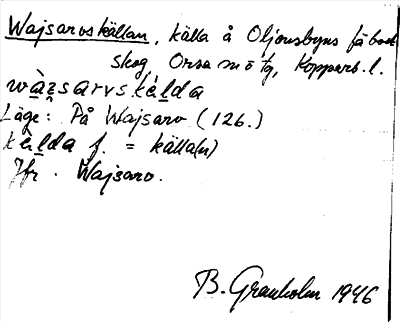 Wajsarvskällan, källa å Oljonsbyns fäbod
skog Orsa sn o tg, Kopparb. l.
wàzsarvskälda
Läge: På Wajsarv (126.)
kälda f. = källa(n)
Jfr. Wajsarv.
B. Granholm 1946